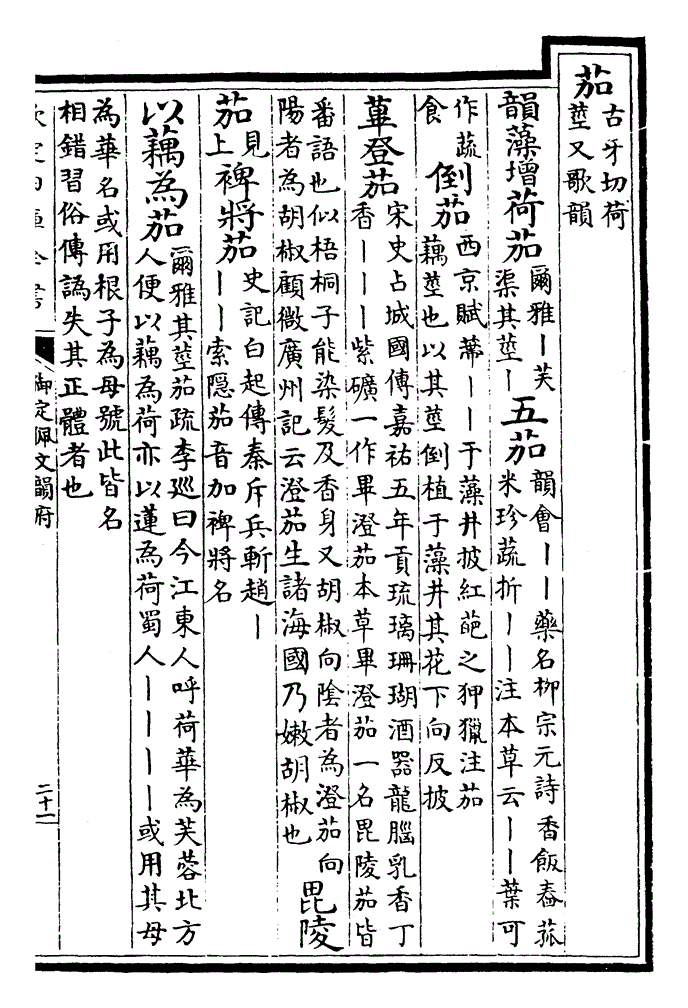 茄
古牙切荷
莖又歌韻
韻藻增荷茄
爾雅丨芙
渠其莖丨
五茄
韻會丨丨藥名柳宗元詩香飯舂菰
米珍蔬折丨丨注本草云丨丨葉可
作蔬
食
倒茄
西京賦蔕丨丨于藻井披紅葩之狎獵注茄
藕莖也以其莖倒植于藻井其花下向反披
蓽登茄
宋史占城國傳嘉祐五年貢琉璃珊瑚酒器龍腦乳香丁
香丨丨丨紫礦一作畢澄茄本草畢澄茄一名毘陵茄皆
番語也似梧桐子能染髮及香身又胡椒向陰者為澄茄向
陽者為胡椒顧微廣州記云澄茄生諸海國乃嫩胡椒也
毘陵
茄
見
上
裨將茄
史記白起傳秦斥兵斬趙丨
丨丨索隱茄音加裨將名
以藕為茄
爾雅其莖茄疏李廵曰今江東人呼荷華為芙蓉北方
人便以藕為荷亦以蓮為荷蜀人丨丨丨丨或用其母
為華名或用根子為母號此皆名
相錯習俗傳譌失其正體者也
欽定四庫全書
御定佩文韻府
二十一